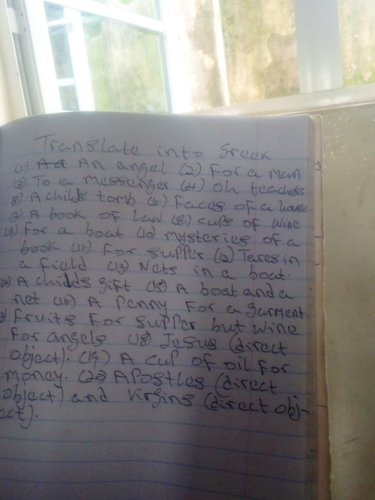 Translate into Greek
(1) An angel (2) For a man
(3) To a messenger (4) Oh teachers
(5) A child's tomb (6) Faces of a house
(7) A book of law (8) cups of wine
(9) For a boat (10) mysteries of a
book (11) For supper (12) Tares in
a field (13) Nets in a boat.
(14) A child's gift (15) A boat and a
net (16) A Penny for a garment
Fruits for supper but wine
for angels (18) Jesus (direct
object). (19) A cup of oil for
money. (20) Apostles (direct
object) and Virgins (direct obj-
ect).